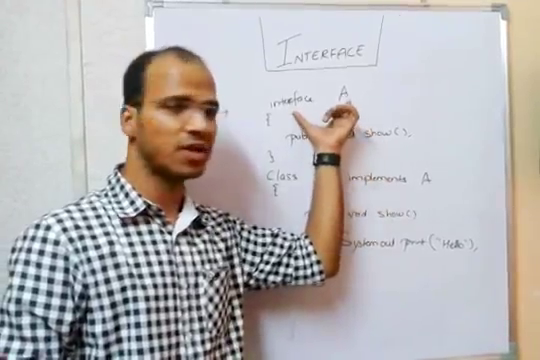 INTERFACE
interface A
{
show();
}
Class implements A
{
void show()
System.out.print("Hello");